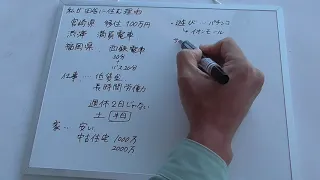 私が田舎に住む理由
宮崎県 移住 100万円
渋滞 満員電車
福岡県 西鉄電車
20分
バス20分
仕事… 低賃金
長時間労働
週休2日じゃない
土 日
家… 安い
中古住宅 1000万
2000万
・遊び… パチンコ
イオンモール